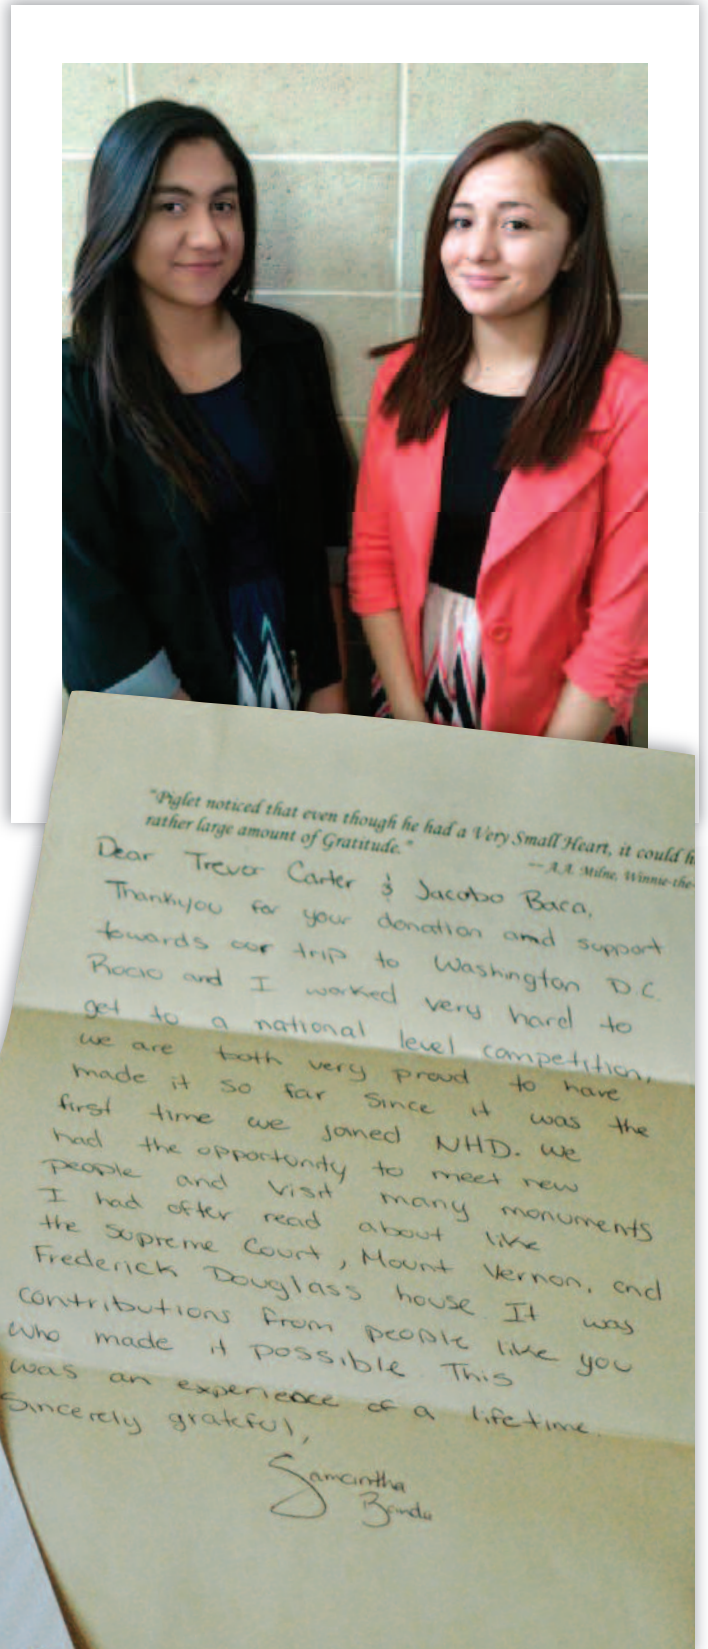 "Piglet noticed that even though he had a Very Small Heart, it could h
rather large amount of Gratitude."
— A.A. Milne, Winnie-the-
Dear Trevor Carter & Jacobo Baca,
Thankyou for your donation and support
towards our trip to Washington D.C.
Rocio and I worked very hard to
get to a national level competition,
we are both very proud to have
made it so far since it was the
first time we joined NHD. we
had the opportunity to meet new
people and visit many monuments
I had often read about like
the Supreme Court, Mount Vernon, and
Frederick Douglass house. It was
contributions from people like you
who made it possible. This
was an experience of a lifetime.
Sincerely grateful,
Samantha